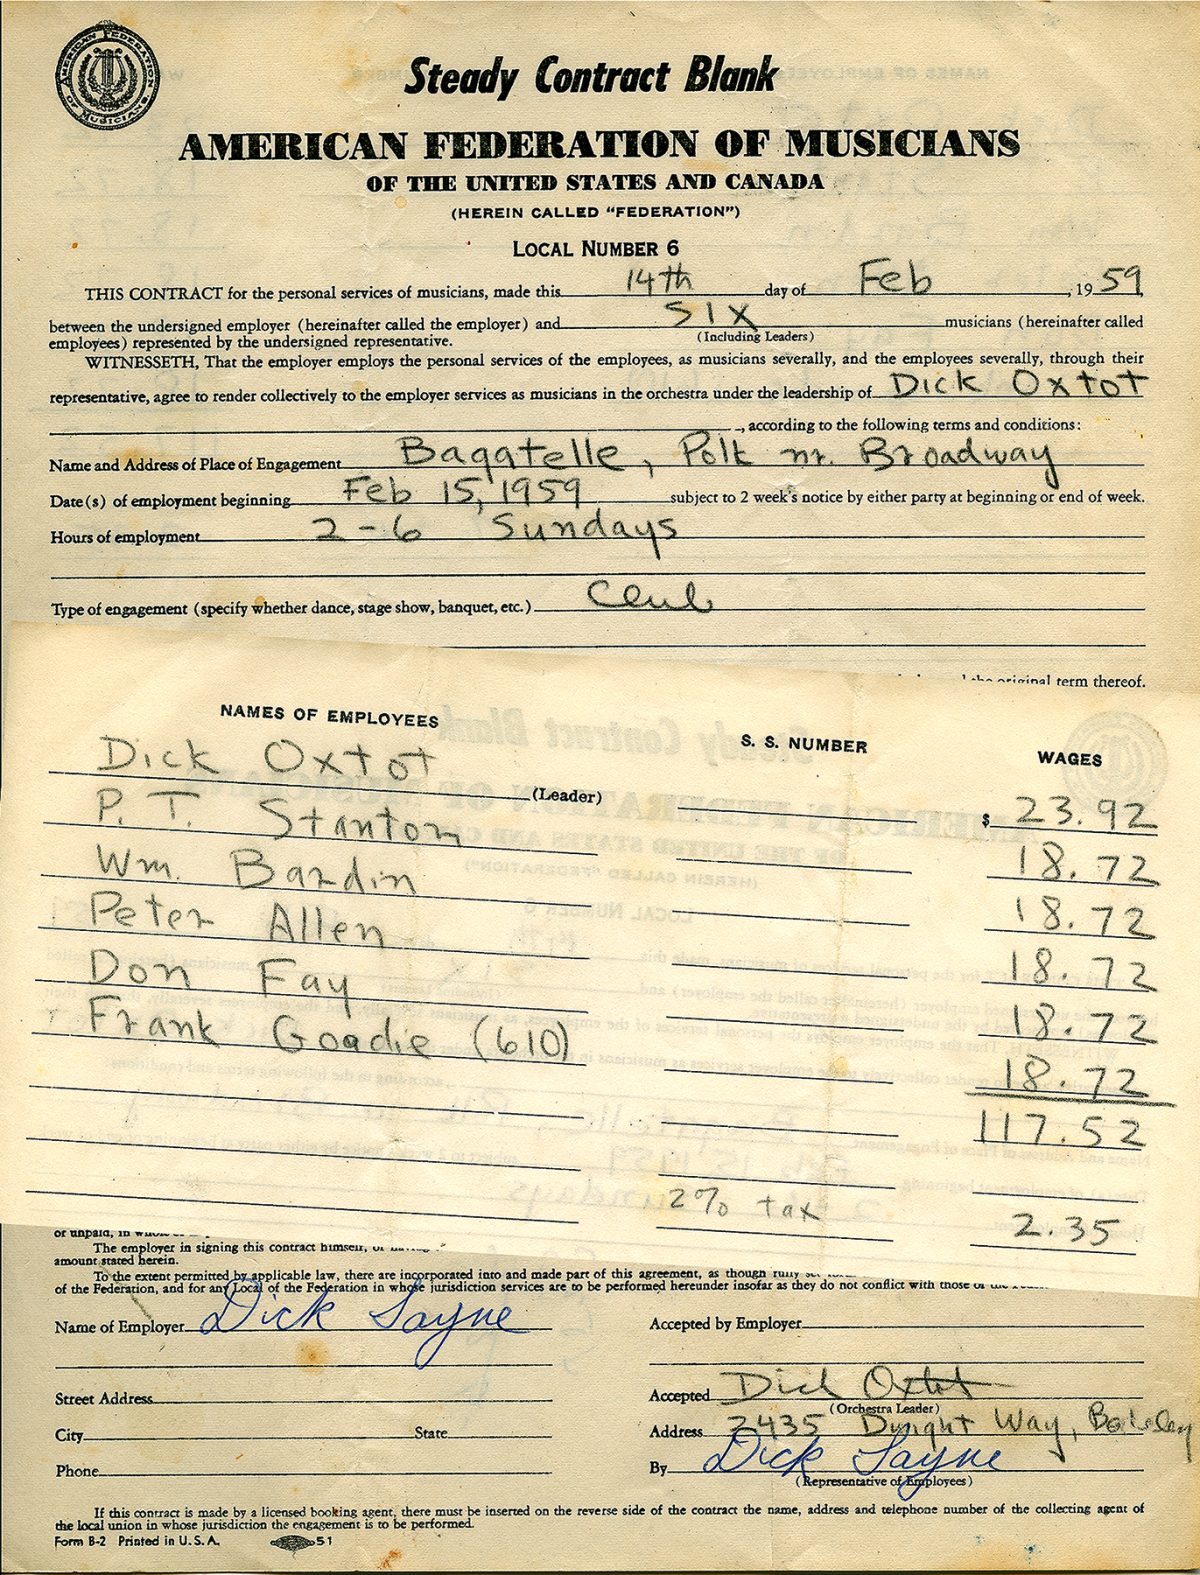 AMERICAN FEDERATION OF MUSICIANS
Steady Contract Blank
AMERICAN FEDERATION OF MUSICIANS
OF THE UNITED STATES AND CANADA
(HEREIN CALLED "FEDERATION")
LOCAL NUMBER 6
THIS CONTRACT for the personal services of musicians, made this 14th day of Feb, 1959
between the undersigned employer (hereinafter called the employer) and SIX musicians (hereinafter called
(Including Leaders)
employees) represented by the undersigned representative.
WITNESSETH, That the employer employs the personal services of the employees, as musicians severally, and the employees severally, through their
representative, agree to render collectively to the employer services as musicians in the orchestra under the leadership of Dick Oxtot
, according to the following terms and conditions:
Name and Address of Place of Engagement Bagatelle, Polk nr. Broadway
Date(s) of employment beginning Feb 15, 1959 subject to 2 week's notice by either party at beginning or end of week.
Hours of employment 2-6 Sundays
Type of engagement (specify whether dance, stage show, banquet, etc.) Club
the original term thereof.
NAMES OF EMPLOYEES S. S. NUMBER WAGES
Dick Oxtot (Leader) $ 23.92
P. T. Stanton 18.72
Wm. Bardin 18.72
Peter Allen 18.72
Don Fay 18.72
Frank Goadie (610) 18.72
117.52
2% tax 2.35
or unpaid, in
The employer in signing this contract himself, or
amount stated herein.
To the extent permitted by applicable law, there are incorporated into and made part of this agreement, as though fully
of the Federation, and for any Local of the Federation in whose jurisdiction services are to be performed hereunder insofar as they do not conflict with those of
Name of Employer Dick Sayne Accepted by Employer
Street Address Accepted Dick Oxtot
(Orchestra Leader)
City State Address 2435 Dwight Way, Berkeley
Phone By Dick Sayne
(Representative of Employees)
If this contract is made by a licensed booking agent, there must be inserted on the reverse side of the contract the name, address and telephone number of the collecting agent of
the local union in whose jurisdiction the engagement is to be performed.
Form B-2 Printed in U. S. A. 51